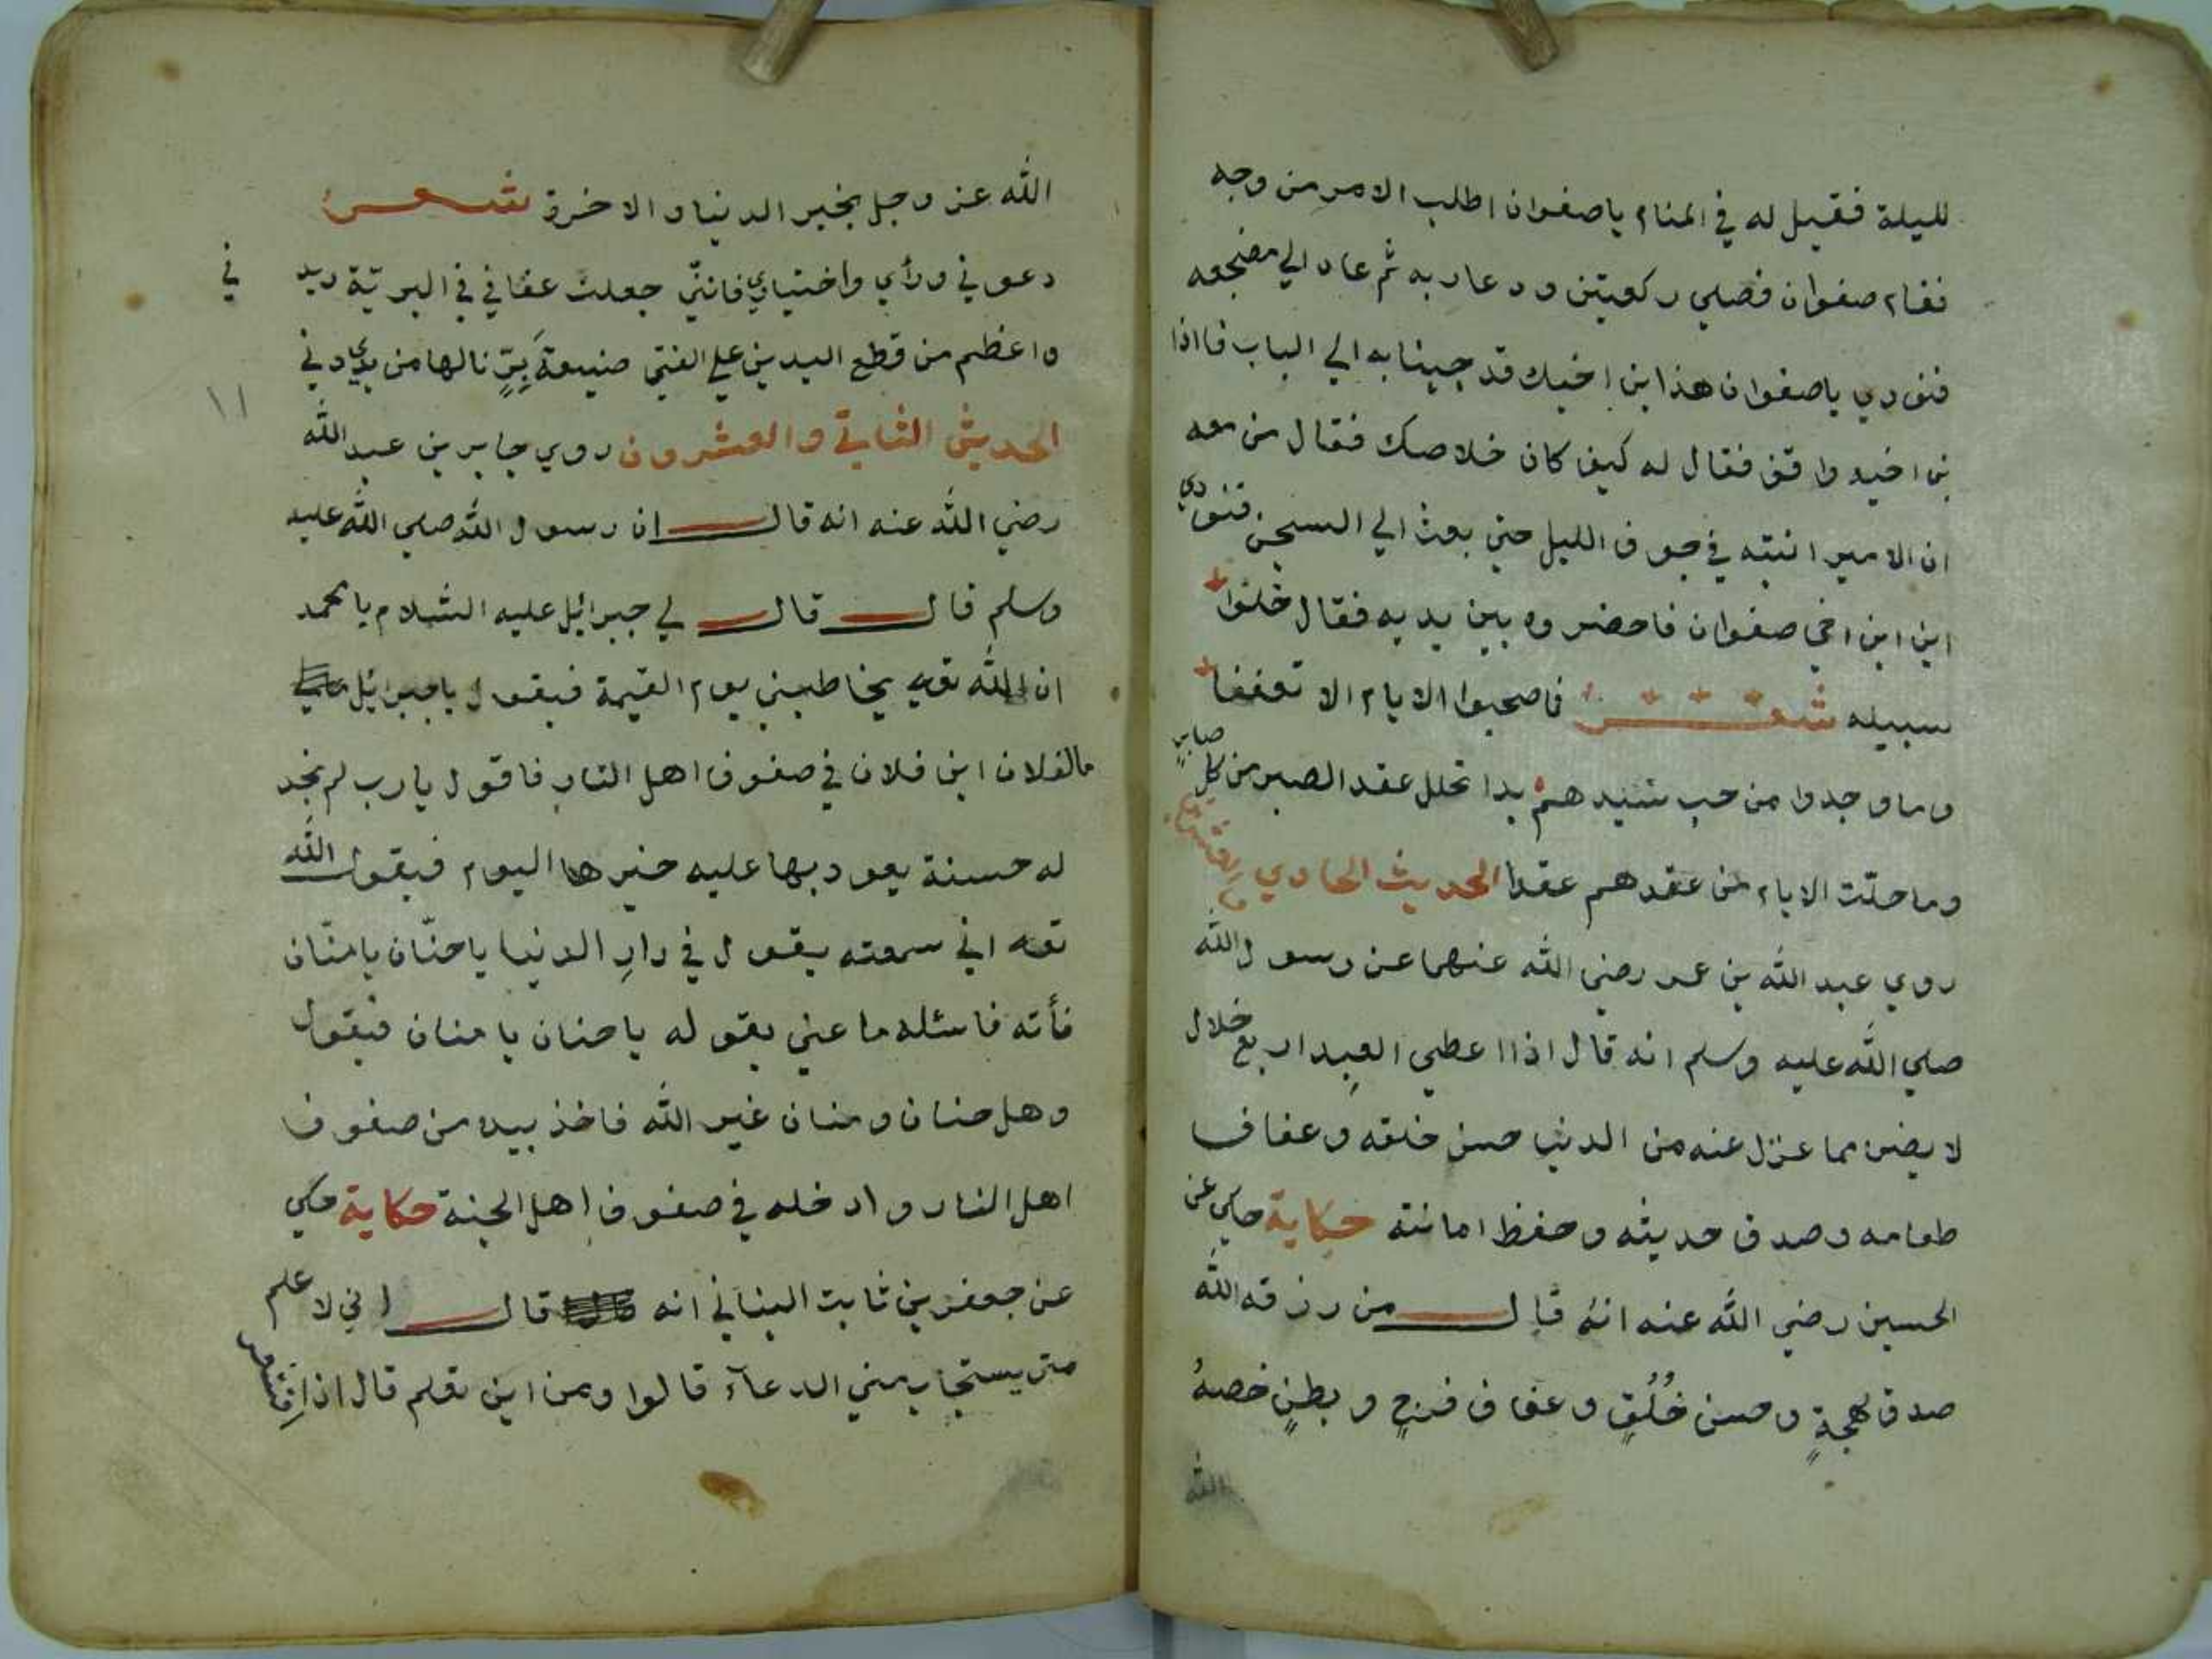 لليلة فقيل له في المنام ياصفوان اطلب الامر من وجه
فقام صفوان فصلي ركعيتن ودعا ربه ثم عاد الي مضجعه
فنودي ياصفوان هذا ابن اخيك قد جينا به الي الباب فااذا
بن اخيه واقف فقال له كيف كان خلاصك فقال من معه
ان الامير انتبه في جوف الليل حتي بعث الي السجن فنودي
اين ابن اخي صفوان فاحضروه بين يديه فقال خلوا
سبيله شعر فاصحبوا الايام الا تعففا
وما وجدوا من حب سيدهم بدا تحلل عقد الصبر من كل صابر
وما حلّت الايام من عقدهم عقدا الحديث الحادي والعشرون
روي عبد الله بن عمر رضي الله عنهما عن رسول الله
صلي الله عليه وسلم انه قال اذا اعطي العبد اربع خلال
لا يضره مما عزل عنه من الدنيا حسن خلقه وعفاف
طعامه وصدق حديثه وحفظ امانته حكاية حكي عن
الحسين رضي الله عنه انه قال من رزقه الله
صدق لهجةٍ وحسن خُلُقٍ وعفاف فرجٍ وبطنٍ خصهُ
الله
الله عز وجل بخير الدنيا والاخرة شعر
دعوني ورأي واختياري فانني جعلت عفافي في البريّة ديد ني
واعظم من قطع اليدين علي الفتي صنيعة بِرٍّ نالها من يدي دني
١١
الحديث الثاني والعشرون روي جابر بن عبد الله
رضي الله عنه انه قال ان رسول الله صلي الله عليه
وسلم قال قال لي جبرائيل عليه السلام يا محمد
ان الله تعه يخاطبني يوم القيمة فيقول ياجبرائيل
مالفلان ابن فلان في صفوف اهل النار فاقول يارب لم نجد
له حسنة يعود بها عليه خيرها اليوم فيقول الله
تعه اني سمعته يقول في دارِ الدنيا ياحنّان يامنّان
فأته فاسئله ما عني بقوله ياحنان يامنان فيقول
وهل حنان ومنان غير الله فاخذ بيده من صفوف
اهل النار وادخله في صفوف اهل الجنة حكاية حكي
عن جعفر بن ثابت البناني انه قال اني لاعلم
متى يستجاب مني الدعآء قالوا ومن اين تعلم قال اذا اقشعر